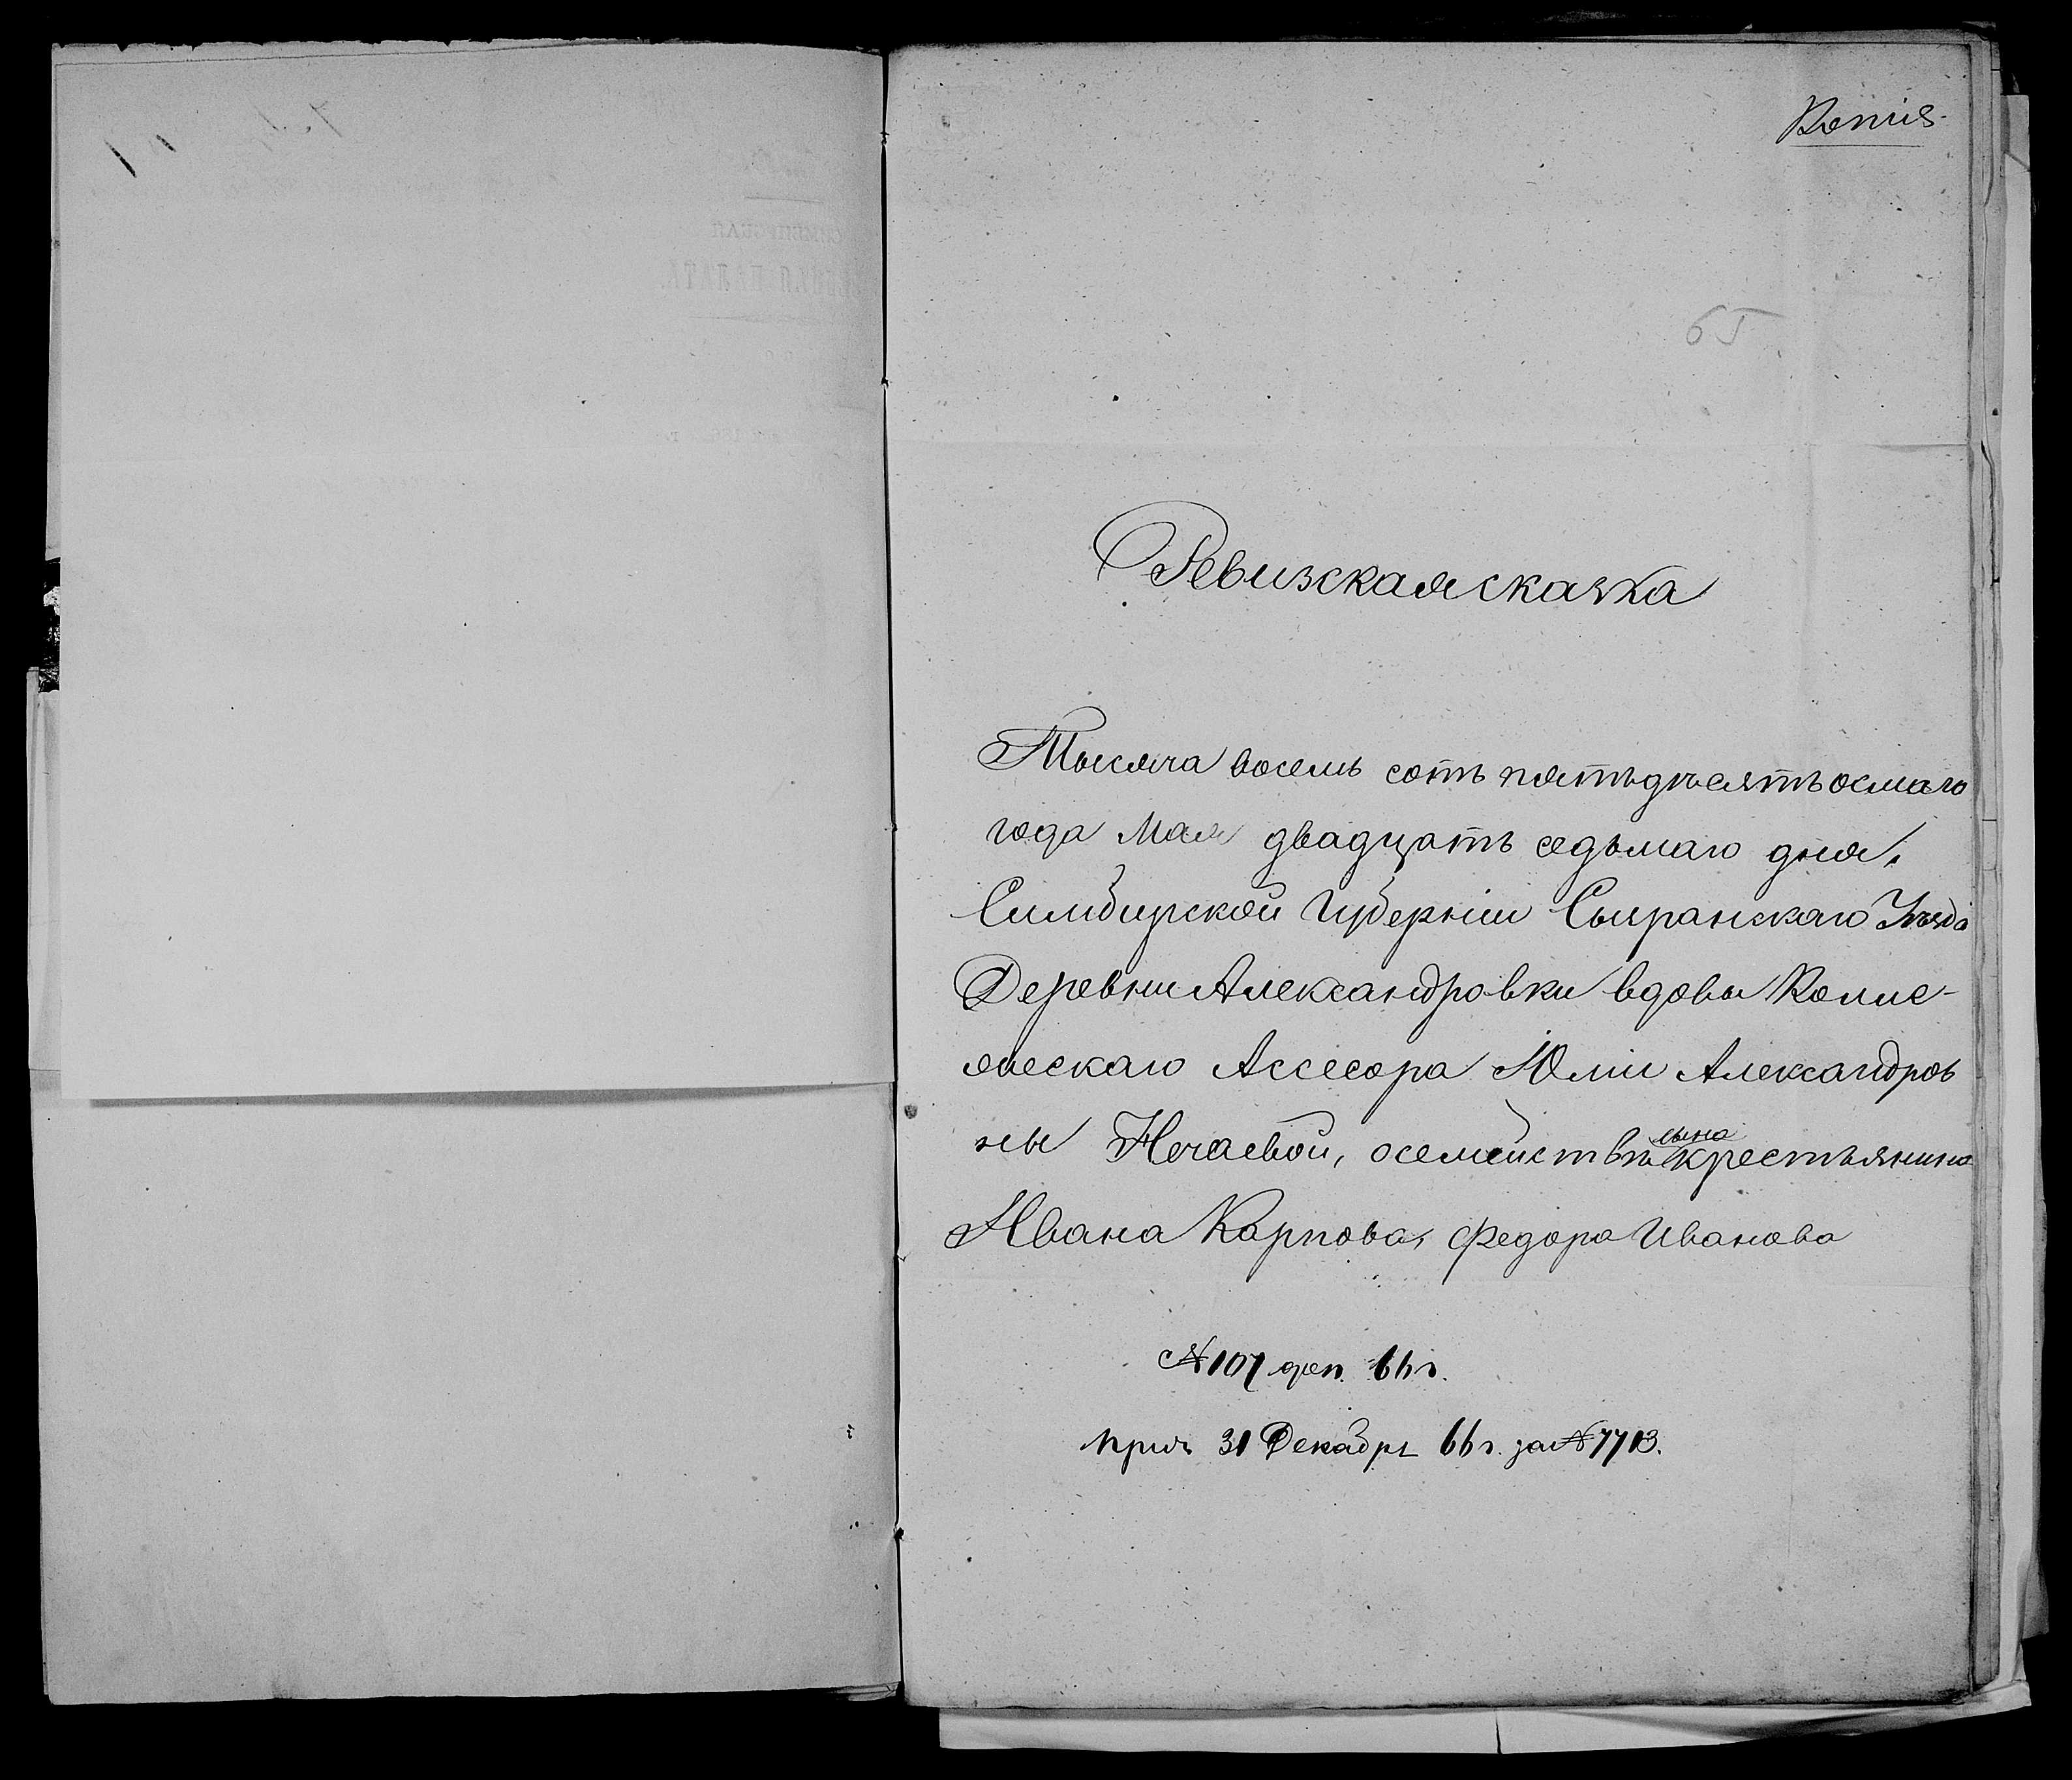 Копія
65
Ревизская сказка
Тысяча восемь сотъ пятьдесятъ осмаго
года Мая двадцать седьмаго дня,
Симбирской Губерніи Сызранскаго Уѣзда
Деревни Александровки вдовы Колле-
жескаго Ассесора Юліи Александров
ны Нечаевой, о семействѣ сына крестьянина
Ивана Карпова, Федора Иванова
№ 107 66 г.
31 Декабря 66 г. за № 7713.